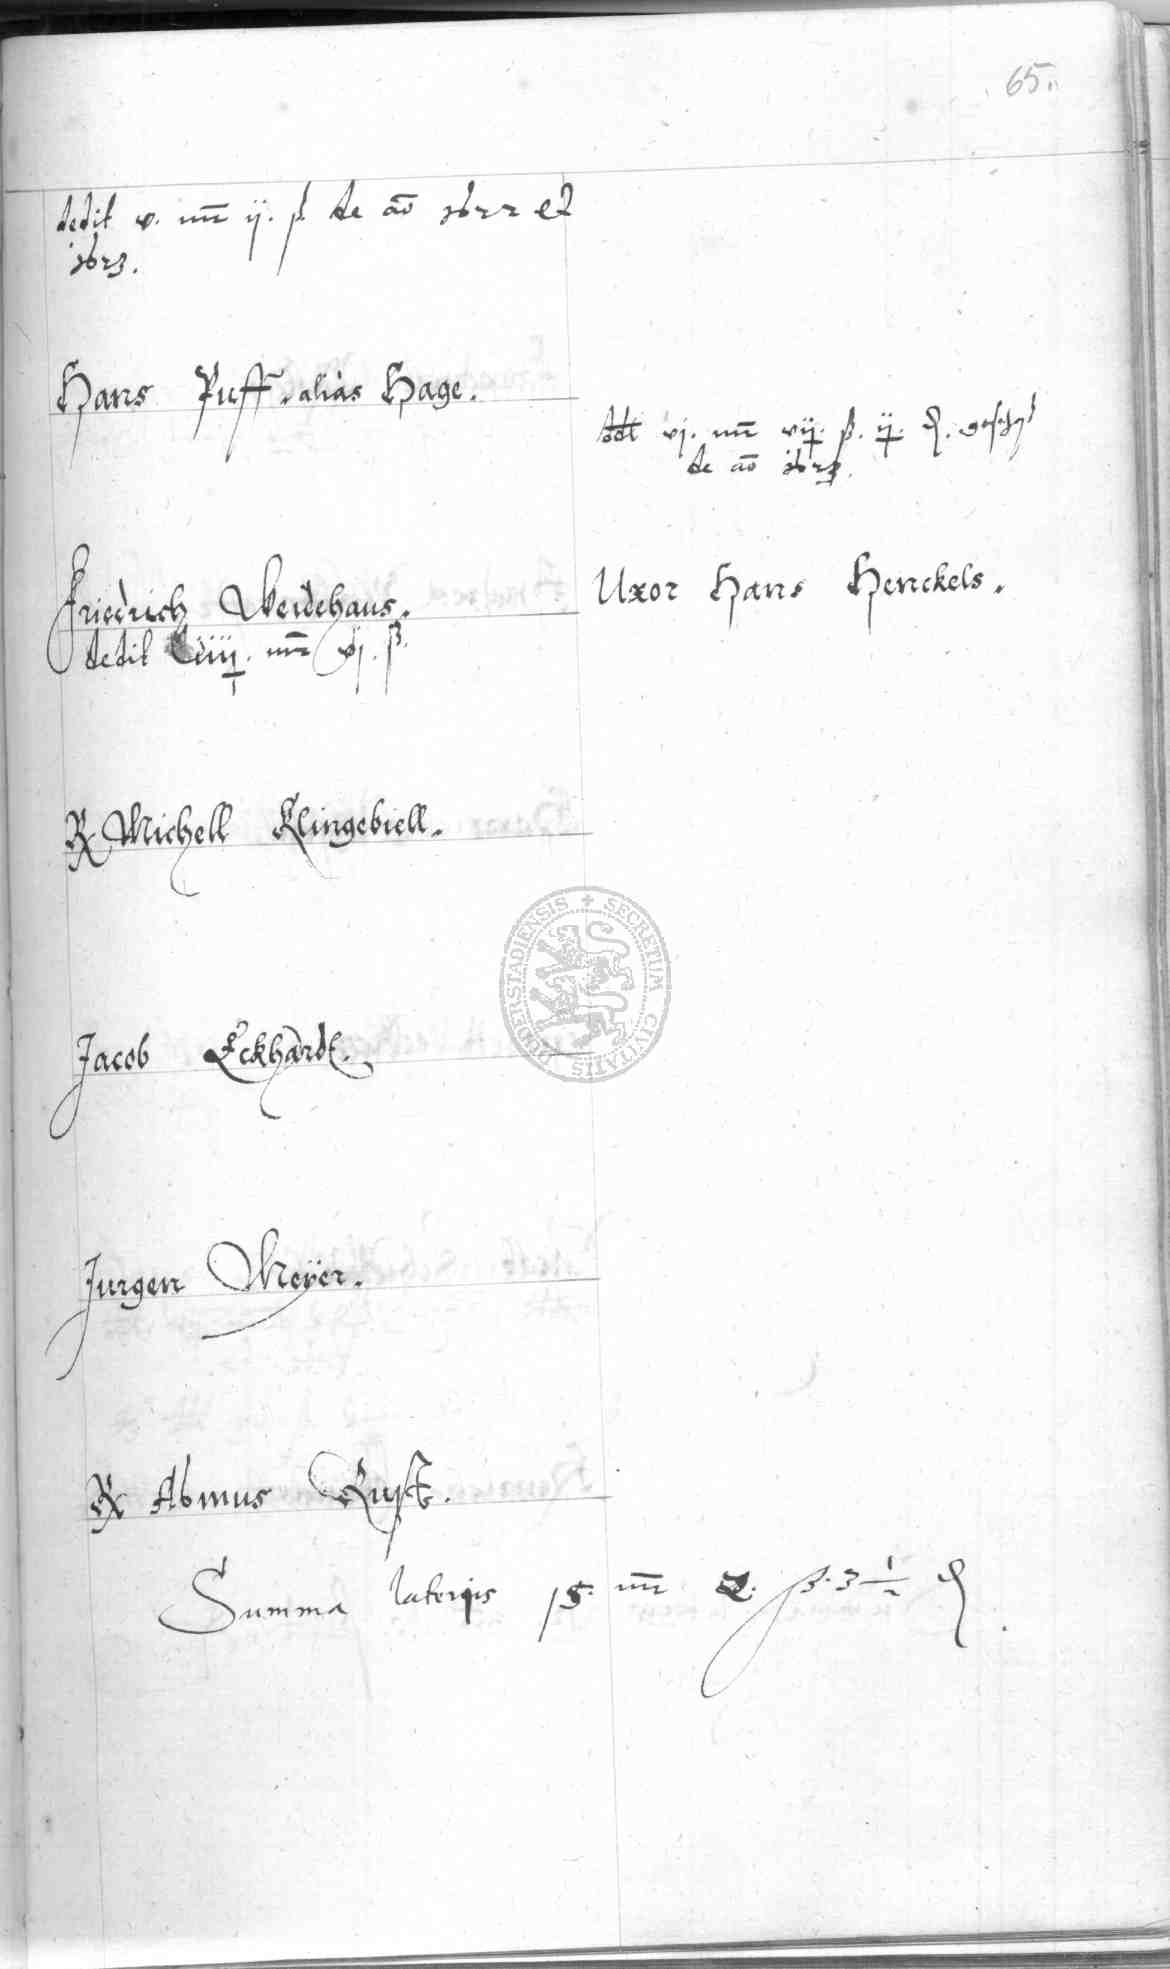 65.
dedit v. mr ij. ß de ao 1622 et
1623.
Hans Puff. alias Hage.
ddt vj. mr vij. ß. ij. d.
de ao 1623.
Friedrich Weidehaus.
Uxor Hans Henckels.
dedit iiij. mr vj. ß.
Michell Klingebiell.
SECRETUM CIVITATIS DUDERSTADIENSIS
Jacob Eckhardt.
Jurgen Meÿer.
Aßmus Rust.
Summa lateris 15. mr 2. ß. 3 1/2 d